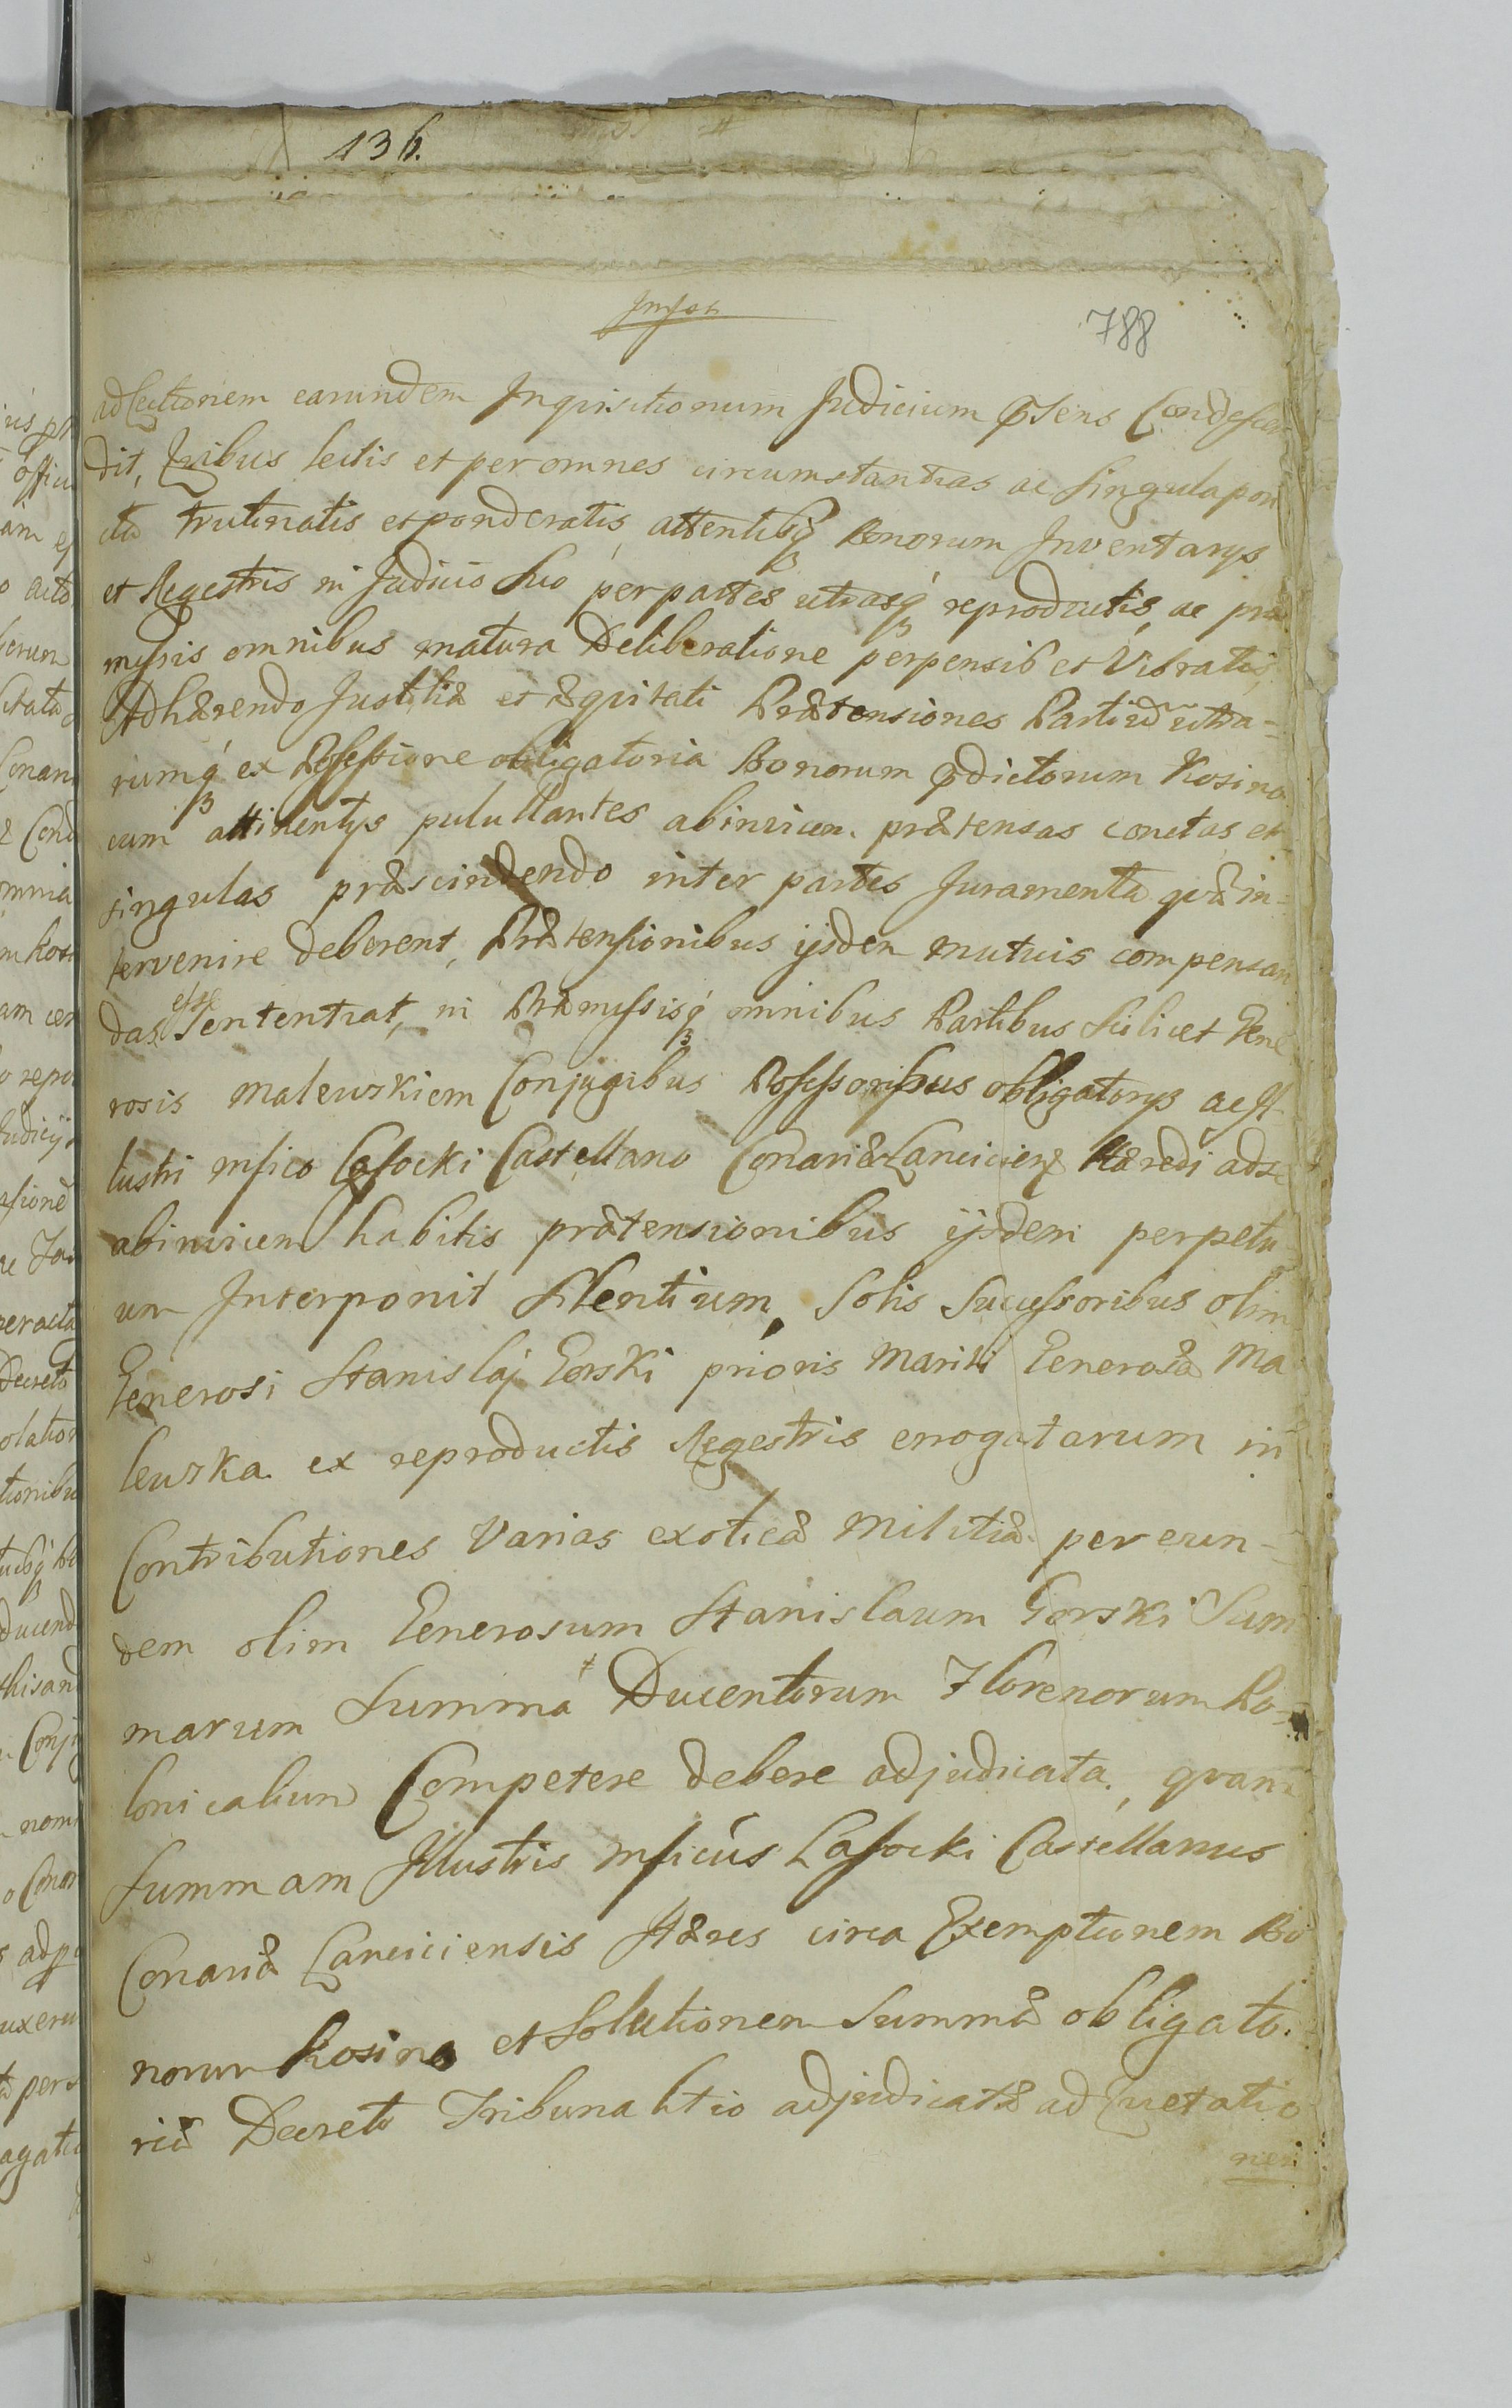 136.
788
ad lectionem earundem Inquisitionum Judicium pħsens Condescen
dit, Qvibus lectis et per omnes circumstantias ac singula pon
cta trutinatis et ponderatis, attentisq́ Bonorum Inventarys
et Regestris in Judicio suo per partes utrasq́ reproductis, ac præ
missis omnibus matura Deliberatione perpensis et Vibratis,
Adhærendo Justitiæ et æqvitati Prætensiones Partium utra-
rumq́ ex Possessione obligatoria Bonorum pħdictorum Kosino
cum attinentys pulullantes abinvicem prætensas cunctas et
singulas præscindendo inter partes Juramenta qvæ in-
tervenire deberent, Prætensionibus ijsdem mutuis compensan
das esse Sententiat, in Præmissisq́ omnibus Partibus Scilicet Gene
rosis Malewskiem Conjugibus Possessoribus obligatorys ac Il
lustri Mfico Lasocki Castellano Conariæ Lanciciens Hæredi ad se
abinvicem habitis prætensionibus ijsdem perpetu
um Interponit Silentium, Solis Successoribus olim
Generosi Stanislaj Gorski prioris Mariti Generosæ Ma
lewska ex reproductis Regestris erogatarum in
Contributiones Varias exoticæ Militiæ per eun-
dem olim Generosum Stanislaum Gorski Sum
marum Summa Ducentorum Florenorum Po-
lonicalium Competere debere adjudicata, qvam
Summam Illustris Mficus Lasocki Castellanus
Conariæ Lanciciensis Hæres circa Exemptionem Bo
norum Kosino et Solutionem Summæ obligato-
riæ Decreto Tribunalitio adjudicatæ ad Qvietatio
nem